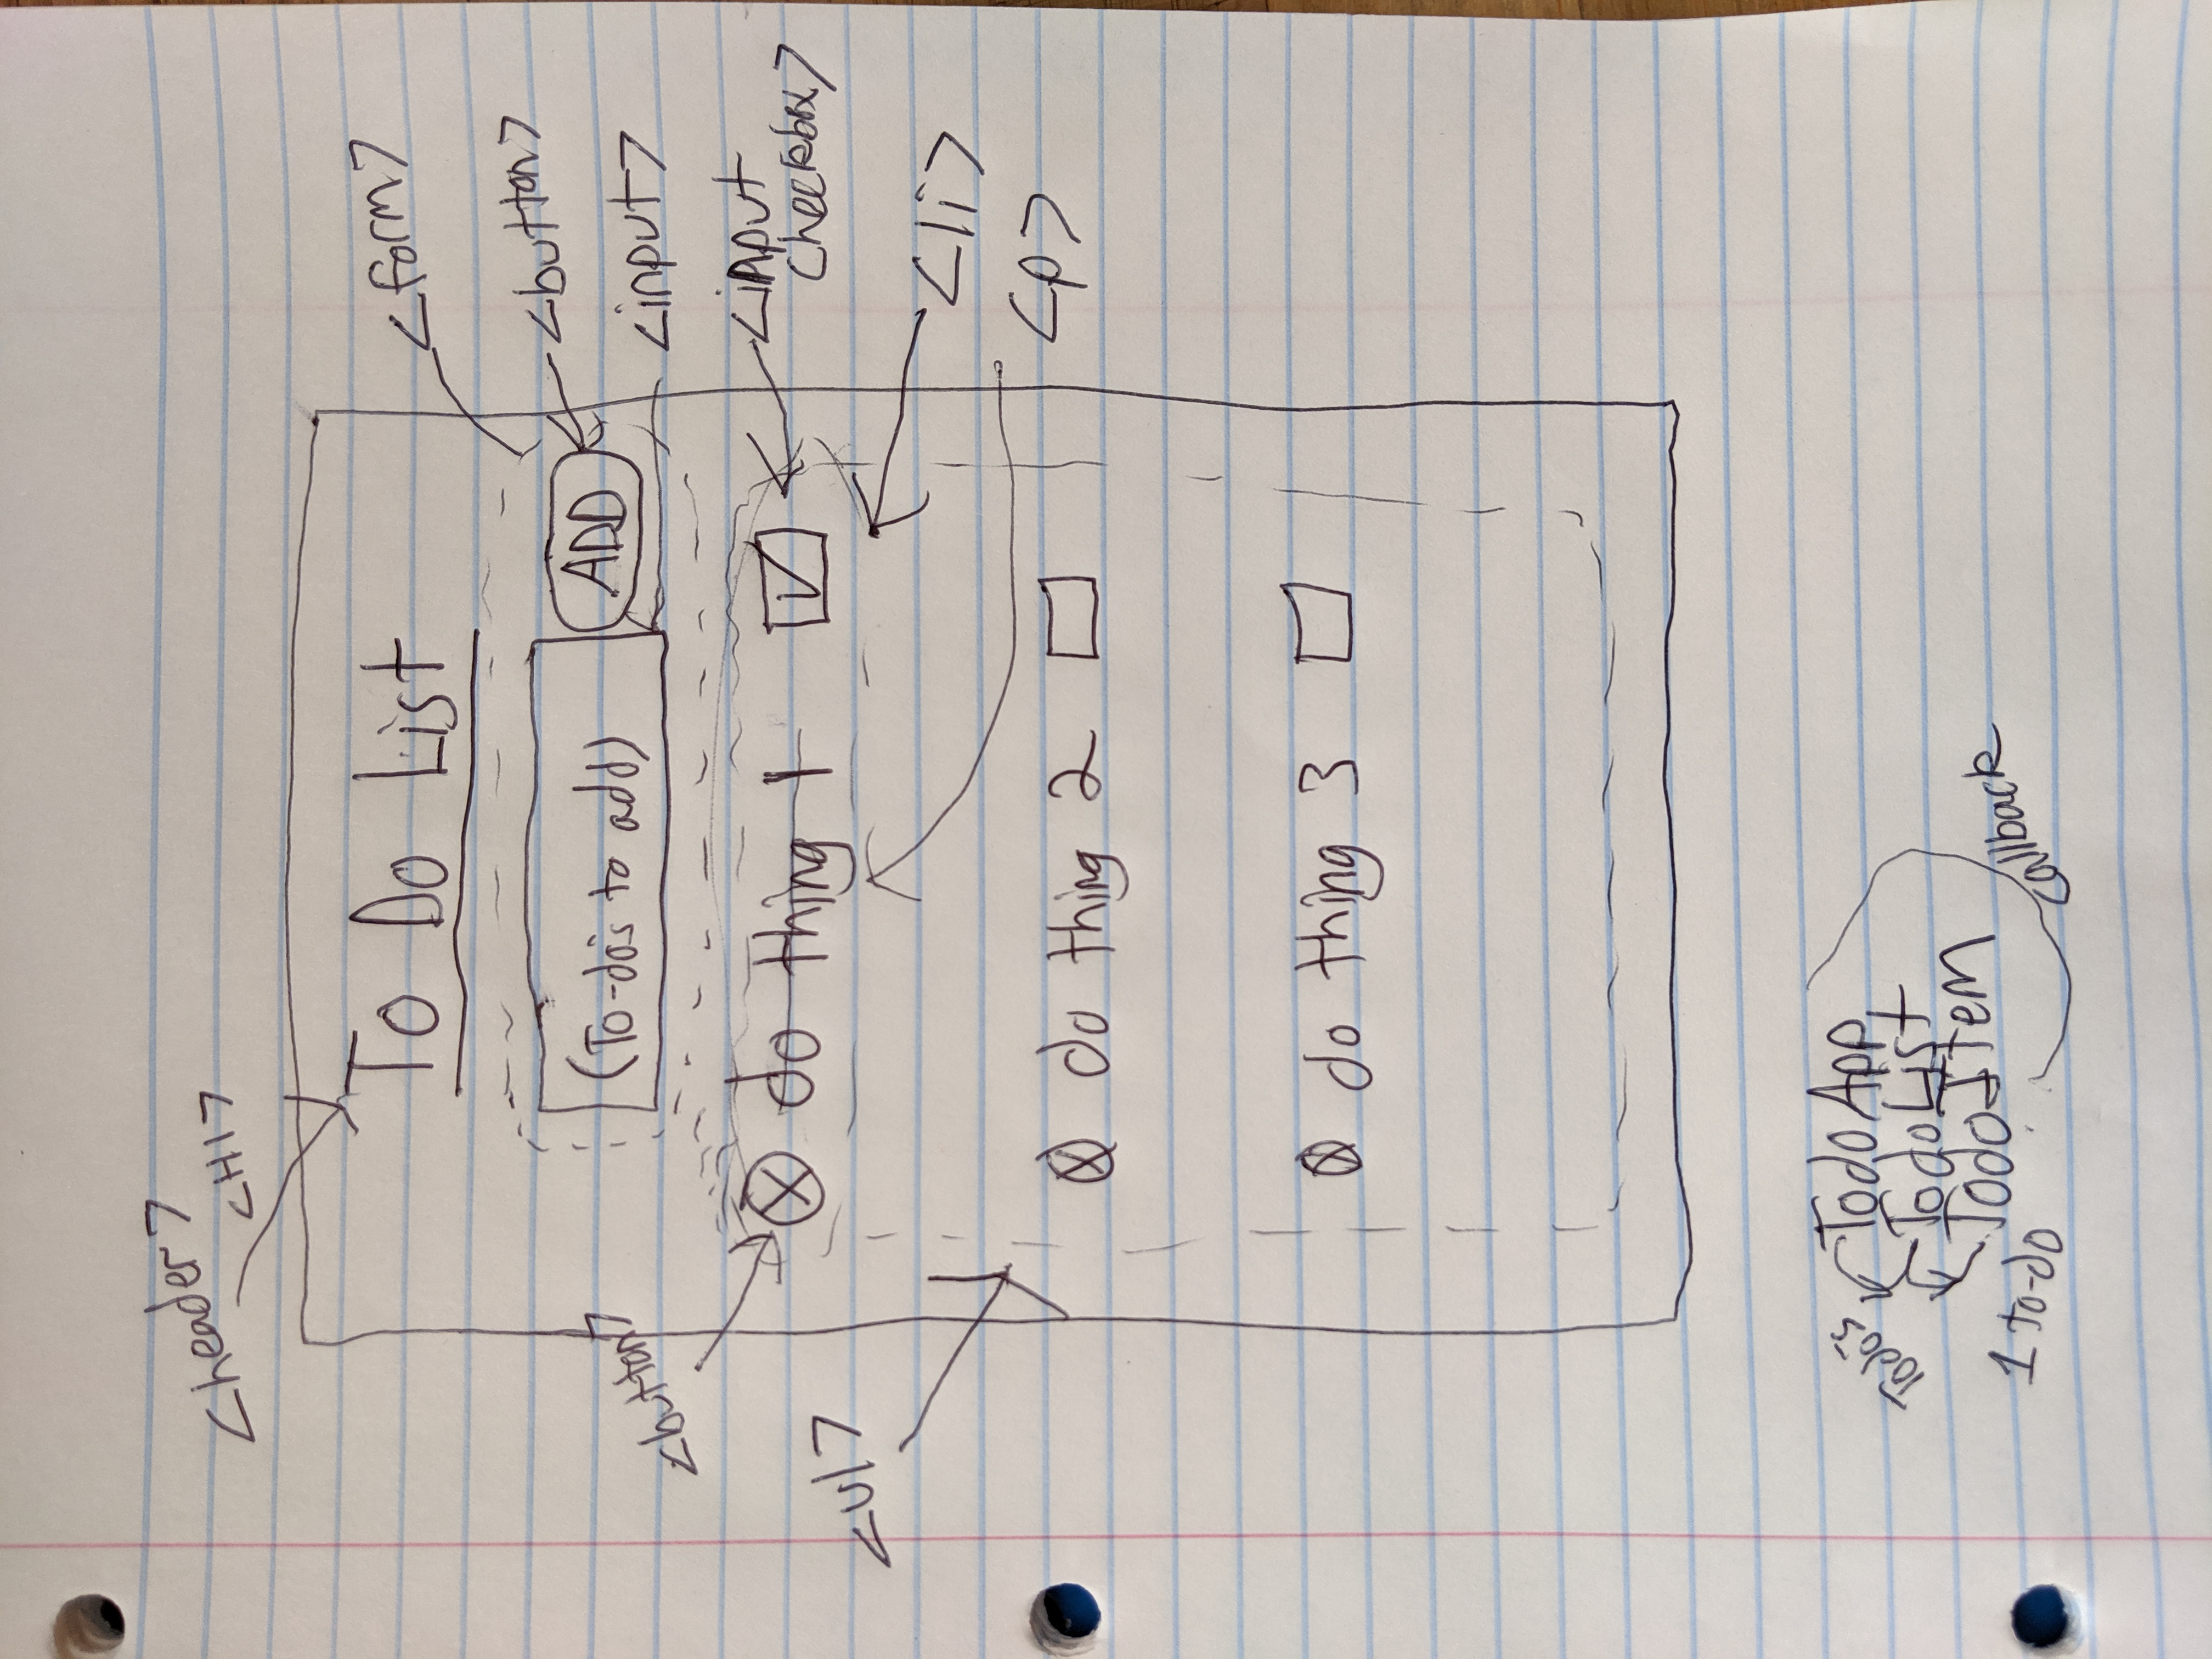 <header>
<H1>
To Do List
<form>
<button>
(To-do's to add) ADD
<input>
<button>
do thing 1 <input
checkbox>
<ul>
<li>
<p>
do thing 2
do thing 3
Todo's
TodoApp
TodoList
TodoItem
1 to-do
callback